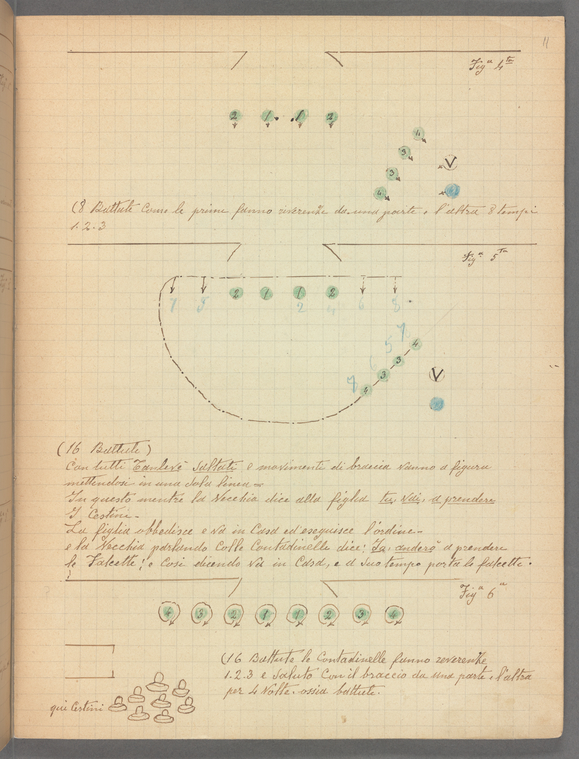 11
Fig.a 4ta
2 1 1 2
4
3
3
4
V
(8 Battute Come le prime fanno riverenze da una parte e l'altra 3 tempi
1.2.3
Fig.a 5ta
2 1 1 2
7 8 2 4 6 8
7
5
4
3
3
7 4
V
(16 Battute)
Con tutti Saltati e movimenti di braccia vanno a figura
mettendosi in una Sola linea
In questo mentre la Vecchia dice alla figlia tu, vai, a prendere
I Cestini.
La figlia obbedisce e va in Casa ed eseguisce l'ordine
e la Vecchia parlando Colle Contadinelle dice: Io, anderò a prendere
le Falcette; e Così dicendo va in Casa, e a Suo tempo porta le falcette.
Fig.a 6a
4 3 2 1 1 2 3 4
(16 Battute le Contadinelle fanno reverenze
1.2.3 e Saluto Con il braccio da una parte e l'altra
per 4 Volte ossia battute.
qui Cestini